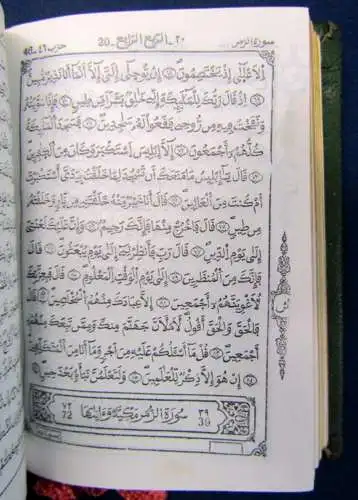 سورة الزمر ... ٢٠ - الربع الرابع - 20 حزب ٤٦ - 46
اَلَاعْلَىٰٓ إِذْ يَخْتَصِمُونَ إِنْ يُّوحَىٰٓ إِلَىَّ إِلَّآ أَنَّمَآ أَنَا نَذِيرٌ مُّبِينٌ
إِذْ قَالَ رَبُّكَ لِلْمَلَٰٓئِكَةِ إِنِّى خَٰلِقٌۢ بَشَراً مِّن طِينٍ فَإِذَا سَوَّيْتُهُۥ
وَنَفَخْتُ فِيهِ مِن رُّوحِى فَقَعُواْ لَهُۥ سَٰجِدِينَ فَسَجَدَ اَلْمَلَٰٓئِكَةُ
كُلُّهُمُۥٓ أَجْمَعُونَ إِلَّآ إِبْلِيسَ اَسْتَكْبَرَ وَكَانَ مِنَ اَلْكَٰفِرِينَ
قَالَ يَٰٓإِبْلِيسُ مَا مَنَعَكَ أَن تَسْجُدَ لِمَا خَلَقْتُ بِيَدَىَّ أَسْتَكْبَرْتَ
أَمْ كُنتَ مِنَ اَلْعَالِينَ قَالَ أَنَا خَيْرٌ مِّنْهُ خَلَقْتَنِى مِن نَّارٍ وَخَلَقْتَهُۥ
مِن طِينٍ قَالَ فَاخْرُجْ مِنْهَا فَإِنَّكَ رَجِيمٌ وَإِنَّ عَلَيْكَ لَعْنَتِىٓ
إِلَىٰ يَوْمِ اِلدِّينِ قَالَ رَبِّ فَأَنظِرْنِىٓ إِلَىٰ يَوْمِ يُبْعَثُونَ قَالَ
فَإِنَّكَ مِنَ اَلْمُنظَرِينَ إِلَىٰ يَوْمِ اِلْوَقْتِ اِلْمَعْلُومِ قَالَ فَبِعِزَّتِكَ
لَأُغْوِيَنَّهُمُۥٓ أَجْمَعِينَ إِلَّا عِبَادَكَ مِنْهُمُ اُلْمُخْلَصِينَ قَالَ
فَالْحَقَّ وَالْحَقَّ أَقُولُ لَأَمْلَأَنَّ جَهَنَّمَ مِنكَ وَمِمَّن تَبِعَكَ مِنْهُمُۥٓ
أَجْمَعِينَ قُلْ مَآ أَسْـَٔلُكُمْ عَلَيْهِ مِنَ اَجْرٍ وَمَآ أَنَا مِنَ اَلْمُتَكَلِّفِينَ
إِنْ هُوَ إِلَّا ذِكْرٌ لِّلْعَٰلَمِينَ وَلَتَعْلَمُنَّ نَبَأَهُۥ بَعْدَ حِينٍ
٣٩ 39 سُورَةُ الزُّمَرِ مَكِّيَّةٌ وَءَايَاتُهَا ٧٢ 72